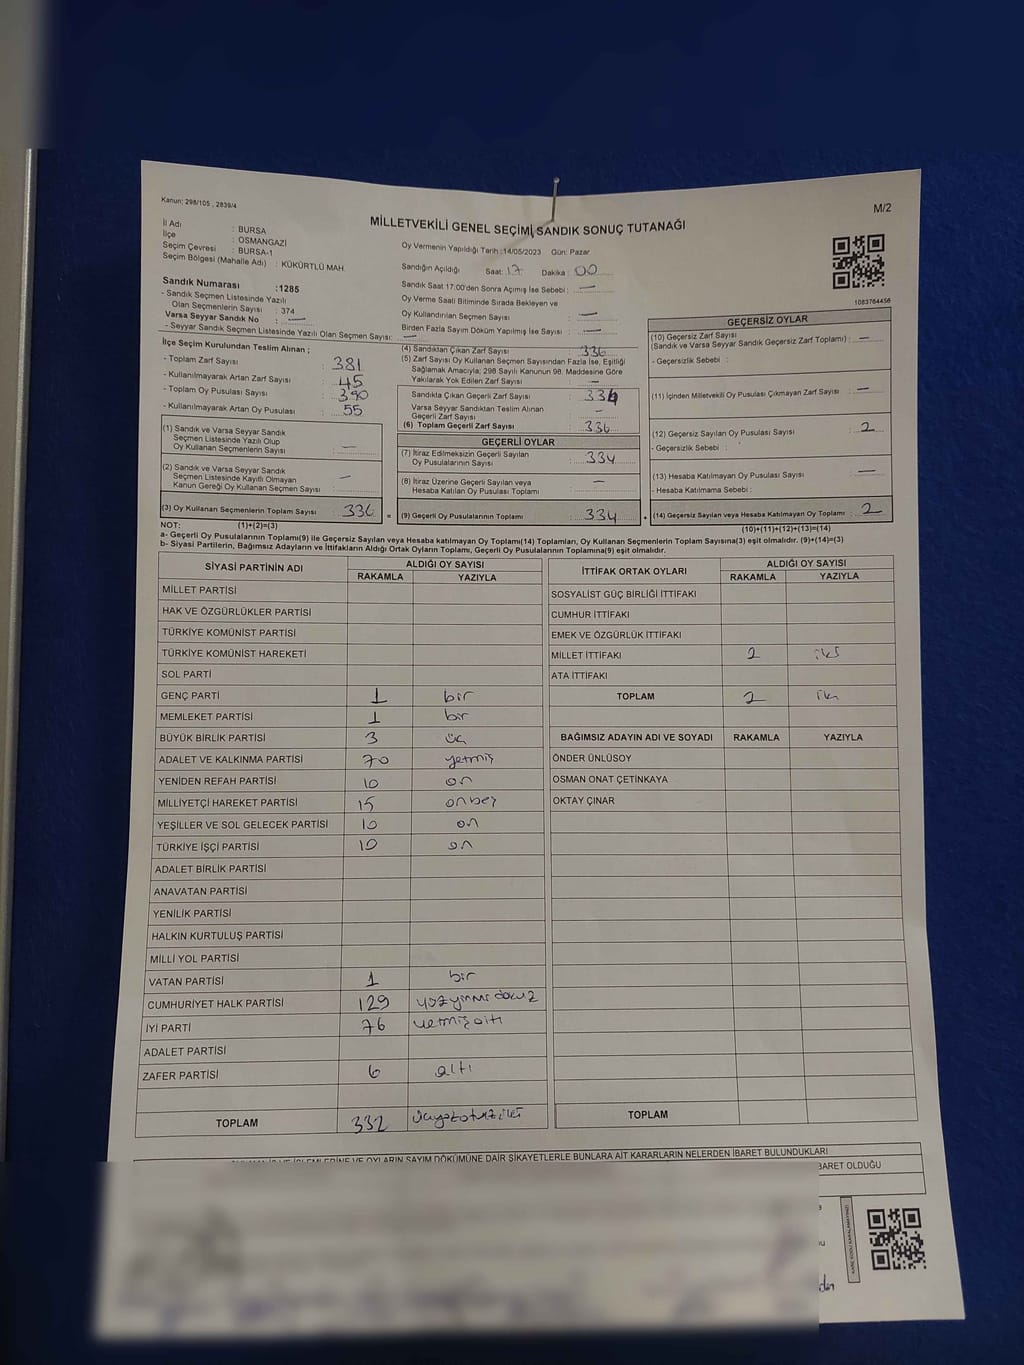 Kanun; 298/105 , 2839/4
M/2
MİLLETVEKİLİ GENEL SEÇİMİ SANDIK SONUÇ TUTANAĞI
İl Adı : BURSA
İlçe : OSMANGAZİ
Seçim Çevresi : BURSA-1
Seçim Bölgesi (Mahalle Adı) : KÜKÜRTLÜ MAH.
Sandık Numarası :1285
- Sandık Seçmen Listesinde Yazılı
Olan Seçmenlerin Sayısı : 374
Varsa Seyyar Sandık No : —
- Seyyar Sandık Seçmen Listesinde Yazılı Olan Seçmen Sayısı: —
Oy Vermenin Yapıldığı Tarih :14/05/2023 Gün: Pazar
Sandığın Açıldığı Saat: 17 Dakika : 00
Sandık Saat 17:00'den Sonra Açımış İse Sebebi : —
Oy Verme Saati Bitiminde Sırada Bekleyen ve
Oy Kullandırılan Seçmen Sayısı : —
Birden Fazla Sayım Döküm Yapılmış İse Sayısı : —
1083764456
İlçe Seçim Kurulundan Teslim Alınan ;
- Toplam Zarf Sayısı : 381
- Kullanılmayarak Artan Zarf Sayısı : 45
- Toplam Oy Pusulası Sayısı : 390
- Kullanılmayarak Artan Oy Pusulası : 55
(1) Sandık ve Varsa Seyyar Sandık
Seçmen Listesinde Yazılı Olup
Oy Kullanan Seçmenlerin Sayısı : —
(2) Sandık ve Varsa Seyyar Sandık
Seçmen Listesinde Kayıtlı Olmayan
Kanun Gereği Oy Kullanan Seçmen Sayısı : —
(3) Oy Kullanan Seçmenlerin Toplam Sayısı : 336
(4) Sandıktan Çıkan Zarf Sayısı : 336
(5) Zarf Sayısı Oy Kullanan Seçmen Sayısından Fazla İse, Eşitliği
Sağlamak Amacıyla; 298 Sayılı Kanunun 98. Maddesine Göre
Yakılarak Yok Edilen Zarf Sayısı : —
Sandıkta Çıkan Geçerli Zarf Sayısı : 336
Varsa Seyyar Sandıktan Teslim Alınan
Geçerli Zarf Sayısı : —
(6) Toplam Geçerli Zarf Sayısı : 336
GEÇERLİ OYLAR
(7) İtiraz Edilmeksizin Geçerli Sayılan
Oy Pusulalarının Sayısı : 334
(8) İtiraz Üzerine Geçerli Sayılan veya
Hesaba Katılan Oy Pusulası Toplamı : —
= (9) Geçerli Oy Pusulalarının Toplamı : 334
GEÇERSİZ OYLAR
(10) Geçersiz Zarf Sayısı
(Sandık ve Varsa Seyyar Sandık Geçersiz Zarf Toplamı) : —
- Geçersizlik Sebebi :
(11) İçinden Milletvekili Oy Pusulası Çıkmayan Zarf Sayısı : —
(12) Geçersiz Sayılan Oy Pusulası Sayısı : 2
- Geçersizlik Sebebi :
(13) Hesaba Katılmayan Oy Pusulası Sayısı : —
- Hesaba Katılmama Sebebi :
+ (14) Geçersiz Sayılan veya Hesaba Katılmayan Oy Toplamı : 2
NOT: (1)+(2)=(3) (10)+(11)+(12)+(13)=(14)
a- Geçerli Oy Pusulalarının Toplamı(9) ile Geçersiz Sayılan veya Hesaba katılmayan Oy Toplamı(14) Toplamları, Oy Kullanan Seçmenlerin Toplam Sayısına(3) eşit olmalıdır. (9)+(14)=(3)
b- Siyasi Partilerin, Bağımsız Adayların ve İttifakların Aldığı Ortak Oyların Toplamı, Geçerli Oy Pusulalarının Toplamına(9) eşit olmalıdır.
SİYASİ PARTİNİN ADI ALDIĞI OY SAYISI
RAKAMLA YAZIYLA
MİLLET PARTİSİ
HAK VE ÖZGÜRLÜKLER PARTİSİ
TÜRKİYE KOMÜNİST PARTİSİ
TÜRKİYE KOMÜNİST HAREKETİ
SOL PARTİ
GENÇ PARTİ 1 bir
MEMLEKET PARTİSİ 1 bir
BÜYÜK BİRLİK PARTİSİ 3 üç
ADALET VE KALKINMA PARTİSİ 70 yetmiş
YENİDEN REFAH PARTİSİ 10 on
MİLLİYETÇİ HAREKET PARTİSİ 15 onbeş
YEŞİLLER VE SOL GELECEK PARTİSİ 10 on
TÜRKİYE İŞÇİ PARTİSİ 10 on
ADALET BİRLİK PARTİSİ
ANAVATAN PARTİSİ
YENİLİK PARTİSİ
HALKIN KURTULUŞ PARTİSİ
MİLLİ YOL PARTİSİ
VATAN PARTİSİ 1 bir
CUMHURİYET HALK PARTİSİ 129 yüzyirmidokuz
İYİ PARTİ 76 yetmişaltı
ADALET PARTİSİ
ZAFER PARTİSİ 6 altı
TOPLAM 332 üçyüzotuziki
İTTİFAK ORTAK OYLARI ALDIĞI OY SAYISI
RAKAMLA YAZIYLA
SOSYALİST GÜÇ BİRLİĞİ İTTİFAKI
CUMHUR İTTİFAKI
EMEK VE ÖZGÜRLÜK İTTİFAKI
MİLLET İTTİFAKI 2 iki
ATA İTTİFAKI
TOPLAM 2 iki
BAĞIMSIZ ADAYIN ADI VE SOYADI RAKAMLA YAZIYLA
ÖNDER ÜNLÜSOY
OSMAN ONAT ÇETİNKAYA
OKTAY ÇINAR
TOPLAM
VE OYLARIN SAYIM DÖKÜMÜNE DAİR ŞİKAYETLERLE BUNLARA AİT KARARLARIN NELERDEN İBARET BULUNDUKLARI
OLDUĞU